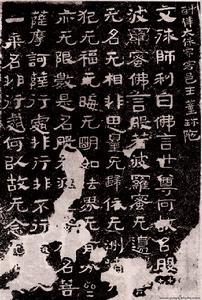 斛律太保家客邑主董珍陀
文殊師利白佛言世尊何故名般
波羅蜜佛言般若波羅蜜无邊
无名无相非思量无歸依无洲
犯无福无晦无明如法界无有分
亦无限數是名般名菩
薩摩訶薩行處非行非不行
一乘名非行處何以故无念